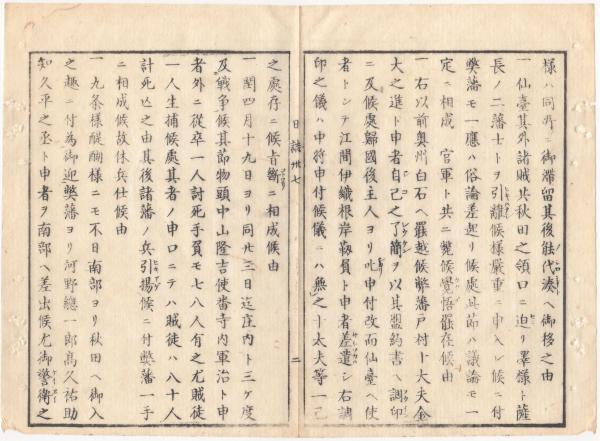 様ハ同所ニ御滞留其後能代湊ヘ御移之由
一仙臺其外諸賊共秋田之領口ニ迫リ澤様ト薩
長ノ二藩士トヲ引離候様嚴重ニ申入レ候ニ付
弊藩モ一應ハ俗論差起リ候處此節ハ議論モ一
定ニ相成 官軍ト共ニ斃候覺悟罷在候由
一右以前奥州白石ヘ罷越候弊藩戸村十大夫金
大之進ト申者自己之了簡ヲ以其盟約書ヘ調印
ニ及候處歸國後主人ヨリ叱申付改而仙臺ヘ使
者トシテ江間伊織根岸靱負ト申者差遣シ右調
印之儀ハ申付候儀ニハ無之十太夫等一己
日誌卅七
二
之處存ニ候旨斷ニ相成候由
一閏四月十九日ヨリ同廿三日迄庄内ト三ケ度
及戦争候其節物頭中山隆吉使番寺内軍治ト申
者外ニ従卒一人討死手負モ七八人有之尤賊徒
一人生捕候處其者ノ申口ニテハ賊徒ハ八十人
計死亡之由其後諸藩ノ兵引揚候ニ付弊藩一手
ニ相成候故休兵仕候由
一九条様醍醐様ニモ不日南部ヨリ秋田ヘ御入
之趣ニ付為御迎弊藩ヨリ河野總一郎高久祐助
知久平之丞ト申者ヲ南部ヘ差出候尤御警衛之